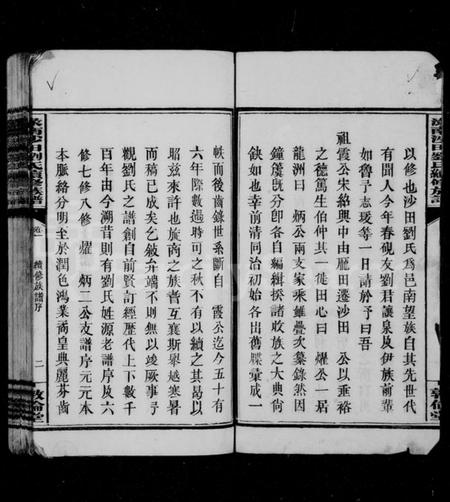 以修也沙田劉氏爲邑南望族自其先世代
有聞人今年春硯友劉君讓泉及伊族前輩
如魯予志瑗等一日請於予曰吾
祖霞公宋紹興中由雁田遷沙田 公以垂裕
之德篤生伯仲其一徙田心曰 燿公一居
龍洲曰 炳公兩支家乘雖疊次彙錄然因
鐘簴旣分卽各自編緝揆諸收族之大典尙
缺如也幸前清同治初始各出舊牒彙成一
漢南沙田劉氏續修族譜
敦倫堂
漢南沙田劉氏續修族譜
卷一 續修族譜序 二
敦倫堂
帙而後齒錄世系斷自 霞公迄今五十有
六年際數過時可之秋不有以續之其曷以
昭茲來許也旋商之族耆互襄斯舉越寒暑
而稿已成矣乞敘弁端不則無以竣厥事予
觀劉氏之譜創自前賢訂經歷代上下數千
百年由今溯昔則有劉氏姓源老譜序及六
修七修八修 燿 炳二公支譜序元元本
本脈絡分明至於潤色鴻業兩皇典麗芬齒